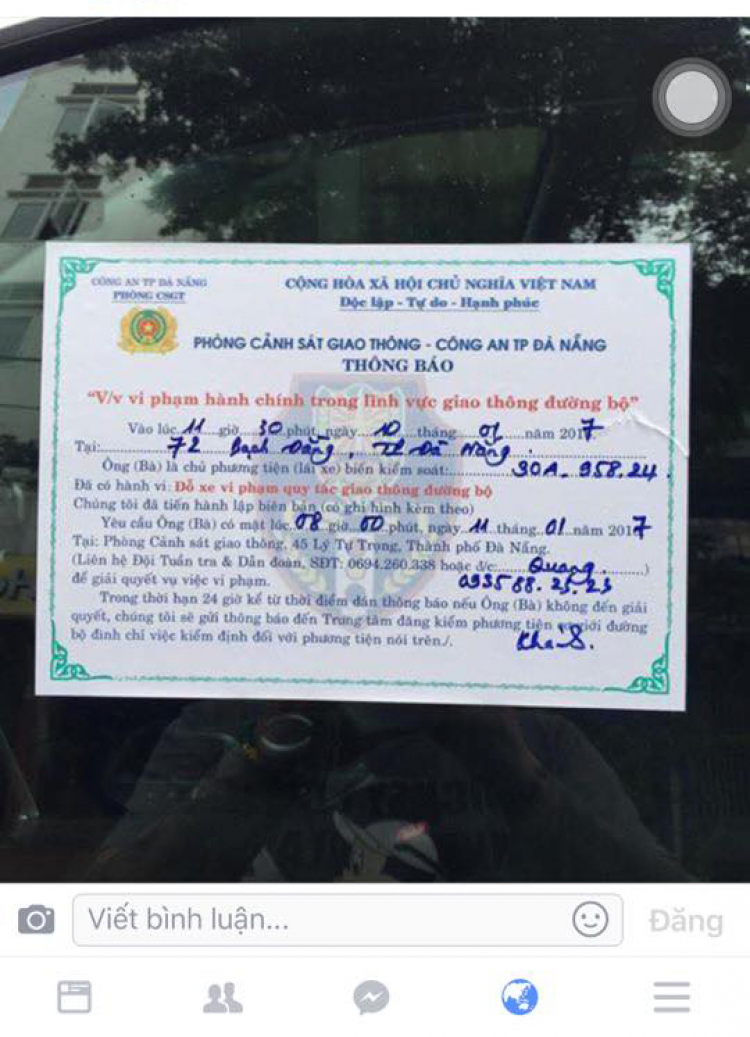 CÔNG AN TP ĐÀ NẴNG
PHÒNG CSGT
CỘNG HÒA XÃ HỘI CHỦ NGHĨA VIỆT NAM
Độc lập - Tự do - Hạnh phúc
PHÒNG CẢNH SÁT GIAO THÔNG - CÔNG AN TP ĐÀ NẴNG
THÔNG BÁO
"V/v vi phạm hành chính trong lĩnh vực giao thông đường bộ"
Vào lúc 11 giờ 30 phút, ngày 10 tháng 01 năm 2017
Tại: 72 Bạch Đằng, TP Đà Nẵng.
Ông (Bà) là chủ phương tiện (lái xe) biển kiểm soát: 30A - 958.24
Đã có hành vi: Đỗ xe vi phạm quy tắc giao thông đường bộ
Chúng tôi đã tiến hành lập biên bản (có ghi hình kèm theo)
Yêu cầu Ông (Bà) có mặt lúc 08 giờ 00 phút, ngày 11 tháng 01 năm 2017
Tại: Phòng Cảnh sát giao thông, 45 Lý Tự Trọng, Thành phố Đà Nẵng.
(Liên hệ Đội Tuần tra & Dẫn đoàn, SĐT: 0694.260.338 hoặc đ/c: Quang.)
để giải quyết vụ việc vi phạm. 0935 88.25.23
Trong thời hạn 24 giờ kể từ thời điểm dán thông báo nếu Ông (Bà) không đến giải
quyết, chúng tôi sẽ gửi thông báo đến Trung tâm đăng kiểm phương tiện cơ giới đường
bộ đình chỉ việc kiểm định đối với phương tiện nói trên./.
Viết bình luận...
Đăng